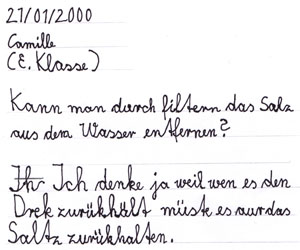 21/01/2000
Camille
(E. Klasse)
Kann man durch filtern das Salz
aus dem Wasser entfernen?
Ich Ich denke ja weil wen es den
Drek zurükhält müste es aur das
Saltz zurükhalten.